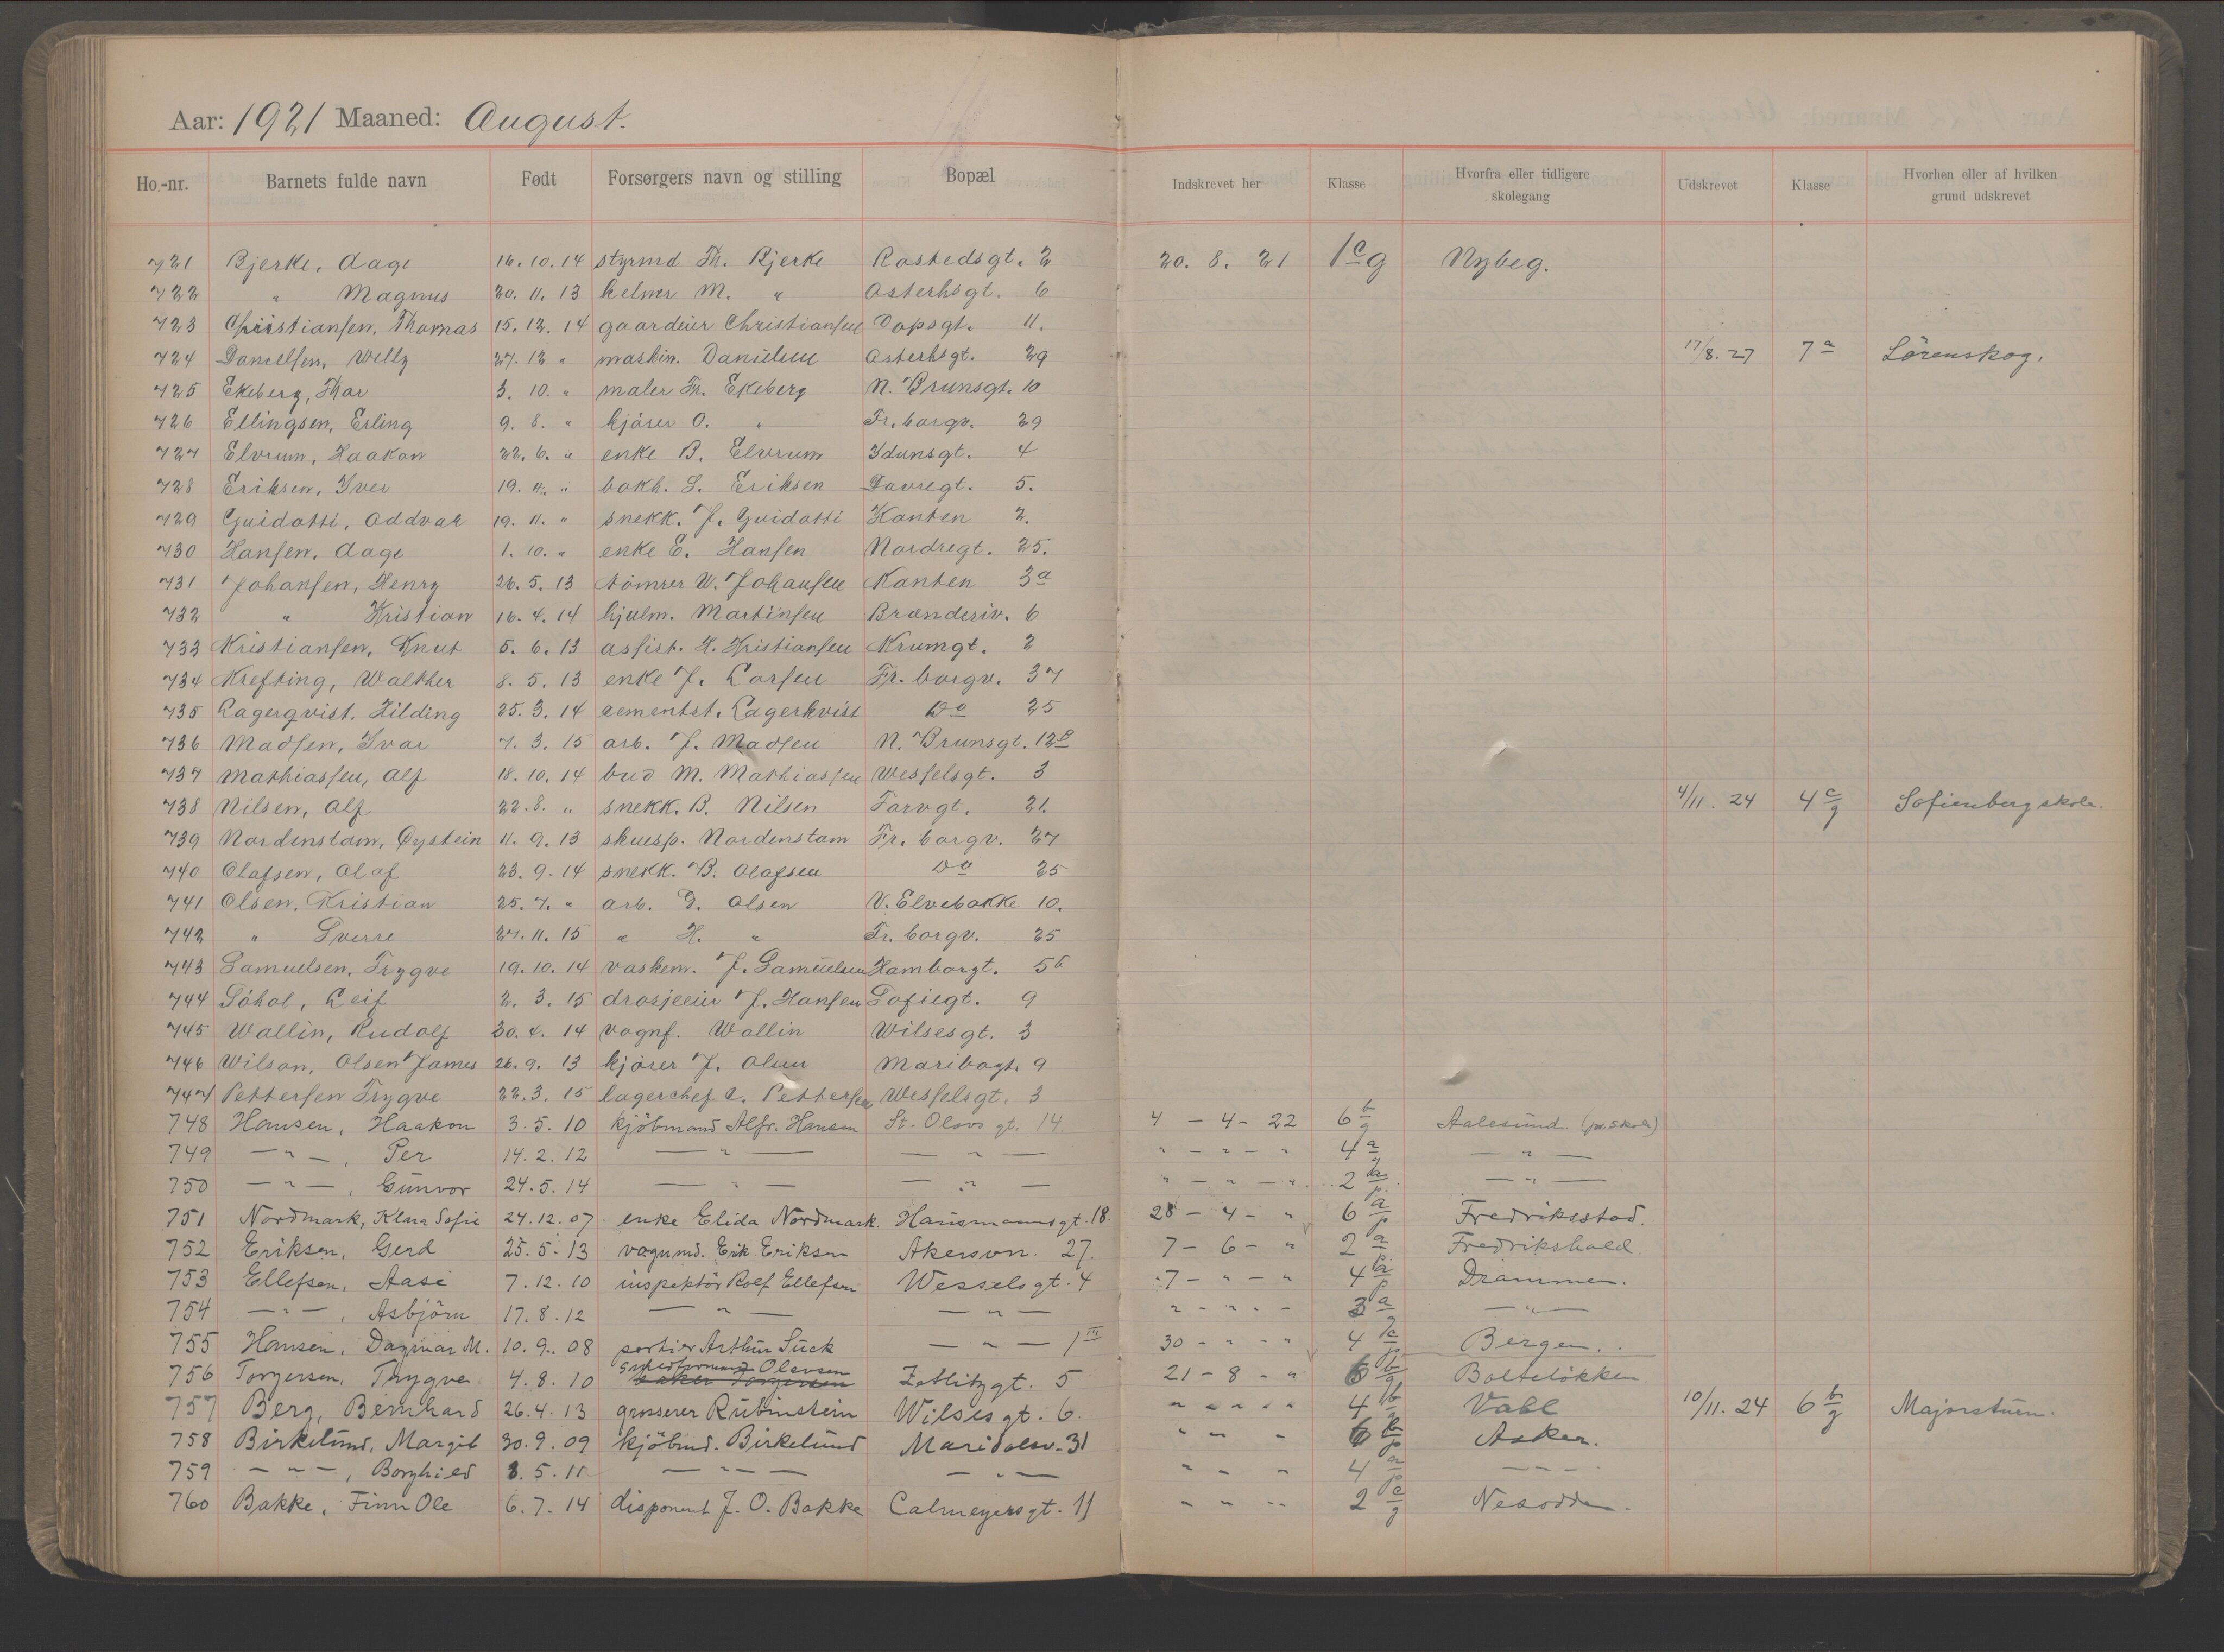 Aar: 1921 Maaned: August.
Ho.-nr. Barnets fulde navn Født Forsørgers navn og stilling Bopæl Indskrevet her Klasse Hvorfra eller tidligere skolegang Udskrevet Klasse Hvorhen eller af hvilken grund udskrevet
721 Bjerke, Aage 16.10.14 styrmd Th. Bjerke Rostedsgt. 2 20. 8. 21 1 c g Nybeg.
722 " Magnus 20. 11. 13 kelner M. " Osterhsgt. 6
723 Christiansen, Thomas 15. 12. 14 gaardeier Christiansen Dopsgt. 11.
724 Danielsen, Willy 27. 12 " maskin. Danielsen Osterhsgt. 29 17/8. 27 7 a Lörenskog.
725 Ekeberg, Thor 3. 10. " maler Th. Ekeberg N. Brunsgt. 10
726 Ellingsen, Erling 9. 8. " kjörer O. " Fr. borgv. 29
727 Elvrum, Haakon 22. 6. " enke B. Elvrum Idunsgt. 4
728 Eriksen, Iver 19. 4. " bokh. S. Eriksen Dovregt. 5.
729 Guidotti, Oddvar 19. 11. " snekk. J. Guidotti Kanten 2.
730 Hansen, Aage 1. 10. " enke E. Hansen Nordregt. 25.
731 Johansen, Henry 26. 5. 13 tömrer W. Johansen Kanten 3 a
732 " Kristian 16. 4. 14 hjulm. Martinsen Brænderiv. 6
733 Kristiansen, Knut 5. 6. 13 assist. H. Kristiansen Krumgt. 2
734 Krefting, Walther 8. 5. 13 enke J. Larsen Fr. borgv. 37
735 Lagerqvist, Hilding 25. 3. 14 cementst. Lagerkvist Do 25
736 Madsen, Ivar 7. 3. 15 arb. J. Madsen N. Brunsgt. 12 B
737 Mathiassen, Alf 18. 10. 14 bud M. Mathiassen Wesselsgt. 3
738 Nilsen, Alf 22. 8. " snekk. B. Nilsen Torvgt. 21. 4/11. 24 4 c g Sofienberg skole.
739 Nordenstam, Öystein 11. 9. 13 skuesp. Nordenstam Fr. borgv. 27
740 Olafsen, Olaf 23. 9. 14 snekk. B. Olafsen Do 25
741 Olsen, Kristian 25. 7. " arb. G. Olsen V. Elvebakke 10.
742 " Sverre 27. 11. 15 " H. " Fr. borgv. 25
743 Samuelsen, Trygve 19. 10. 14 vaskem. J. Samuelsen Hamborgt. 5 b
744 Söhol, Leif 2. 3. 15 drosjeeier J. Hansen Sofiegt. 9
745 Wallin, Rudolf 30. 4. 14 vognf. Wallin Wilsesgt. 3
746 Wilson, Olsen James 26. 9. 13 kjörer J. Olsen Maribogt. 9
747 Pettersen Trygve 22. 3. 15 lagerchef C. Pettersen Wesselsgt. 3
748 Hansen, Haakon 3. 5. 10 kjöbmand Alfr. Hansen St. Olavs gt. 14. 4 - 4 - 22 6 b g Aalesund. (pr. skole)
749 — " —, Per 14. 2. 12 — " — — " — " - " - " 4 a g — " —
750 — " —, Gunvor 24. 5. 14 — " — — " — " - " - " 2 b p — " —
751 Nordmark, Klara Sofie 24. 12. 07 enke Elida Nordmark. Hausmannsgt. 18. 28 - 4 - " 6 a p Fredriksstad.
752 Eriksen, Gerd 25. 5. 13 vognmd. Erik Eriksen Akersvn. 27. 7 - 6 - " 2 a p Fredrikshald.
753 Ellefsen, Aase 7. 12. 10 inspektör Rolf Ellefsen Wesselsgt. 4 7 - " - " 4 a p Drammen.
754 — " —, Asbjörn 17. 8. 12 — " — — " — " - " - " 3 a g — " —
755 Hansen, Dagmar M. 10. 9. 08 portier Arthur Suck — " — 1 III 30 - " - " 4 c p Bergen.
756 Torgersen, Thrygve 4. 8. 10 Olavsen baker Torgersen Zetlitzgt. 5 21 - 8 - " 6 b g Bolteløkken
757 Berg, Bernhard 26. 4. 13 grosserer Rubinstein Wilsesgt. 6. " " " " 4 b g Vahl 10/11. 24 6 b g Majorstuen.
758 Birkelund, Margit 30. 9. 09 kjöbmd. Birkelund Maridalsv. 31 " " " 6 b p Asker.
759 — " —, Borghild 8. 5. 11 — " — — " — " " " 4 a p — " —
760 Bakke, Finn Ole 6. 7. 14 disponent J. O. Bakke Calmeyersgt. 11 " " " 2 c g Nesodden.